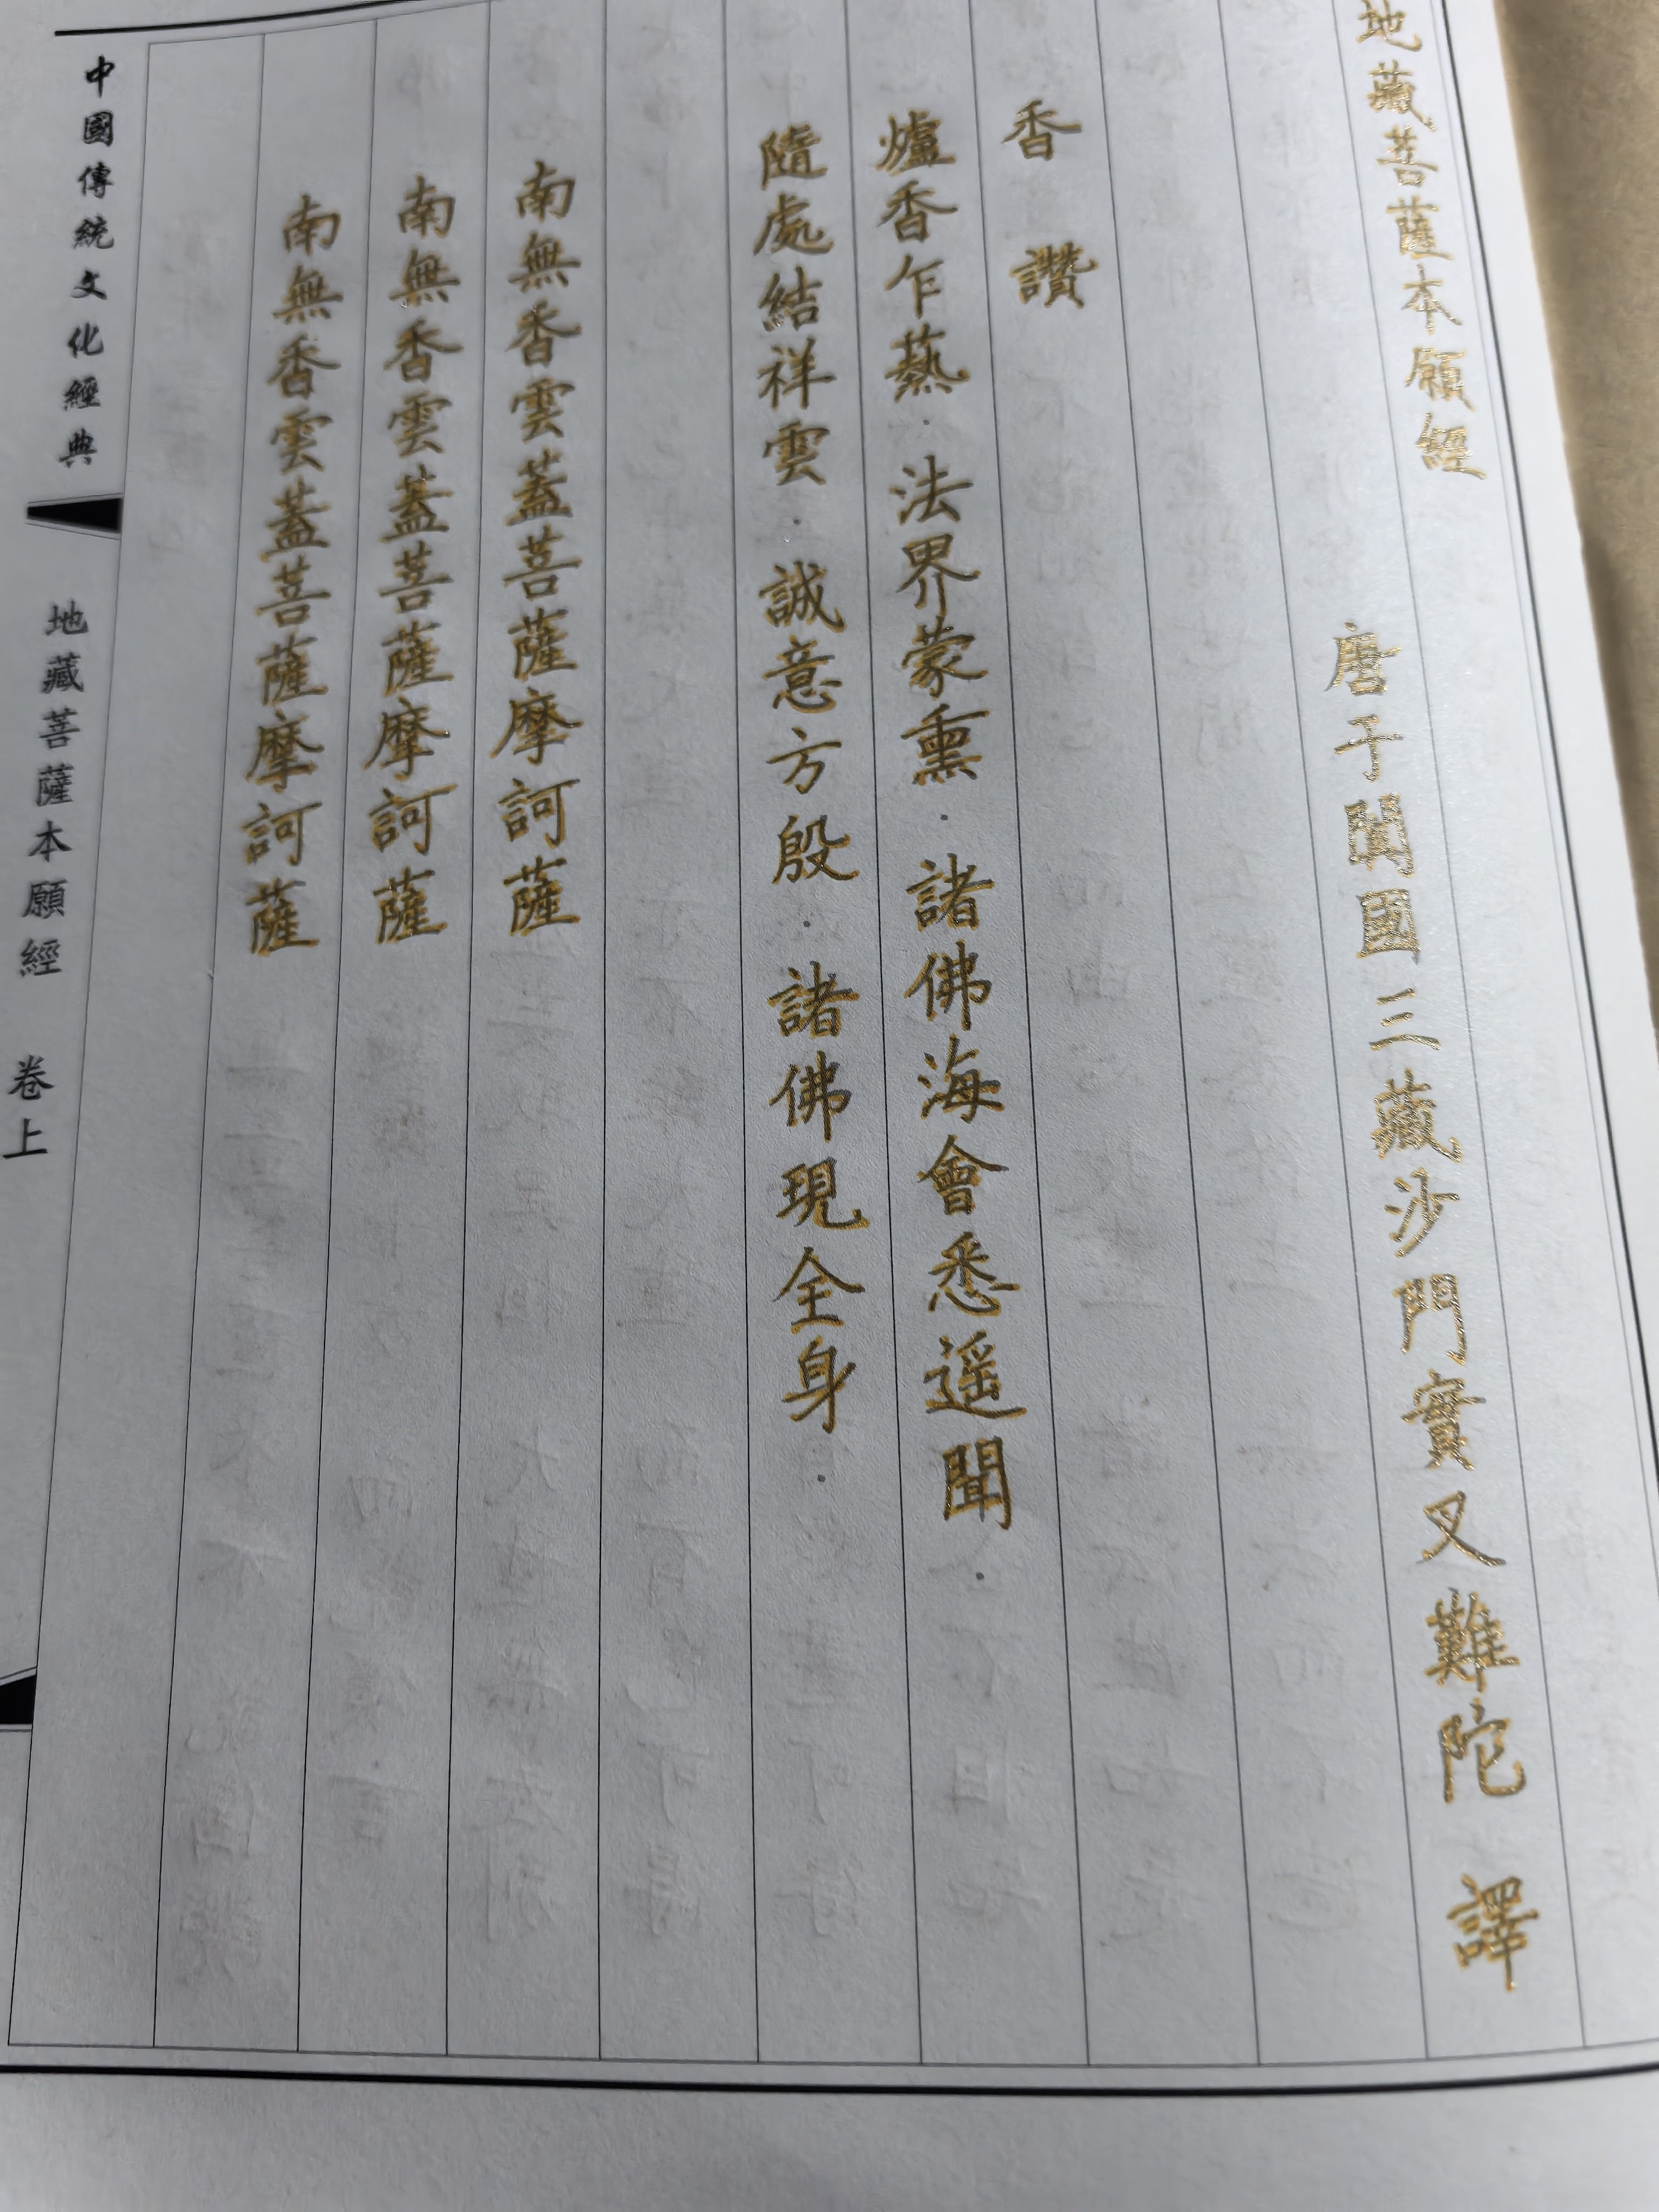 地藏菩薩本願經
唐于闐國三藏沙門實叉難陀 譯
香 讚
爐香乍爇．法界蒙熏．諸佛海會悉遥聞．
隨處結祥雲．誠意方殷．諸佛現全身．
南無香雲蓋菩薩摩訶薩
南無香雲蓋菩薩摩訶薩
南無香雲蓋菩薩摩訶薩
中國傳統文化經典 地藏菩薩本願經 卷上